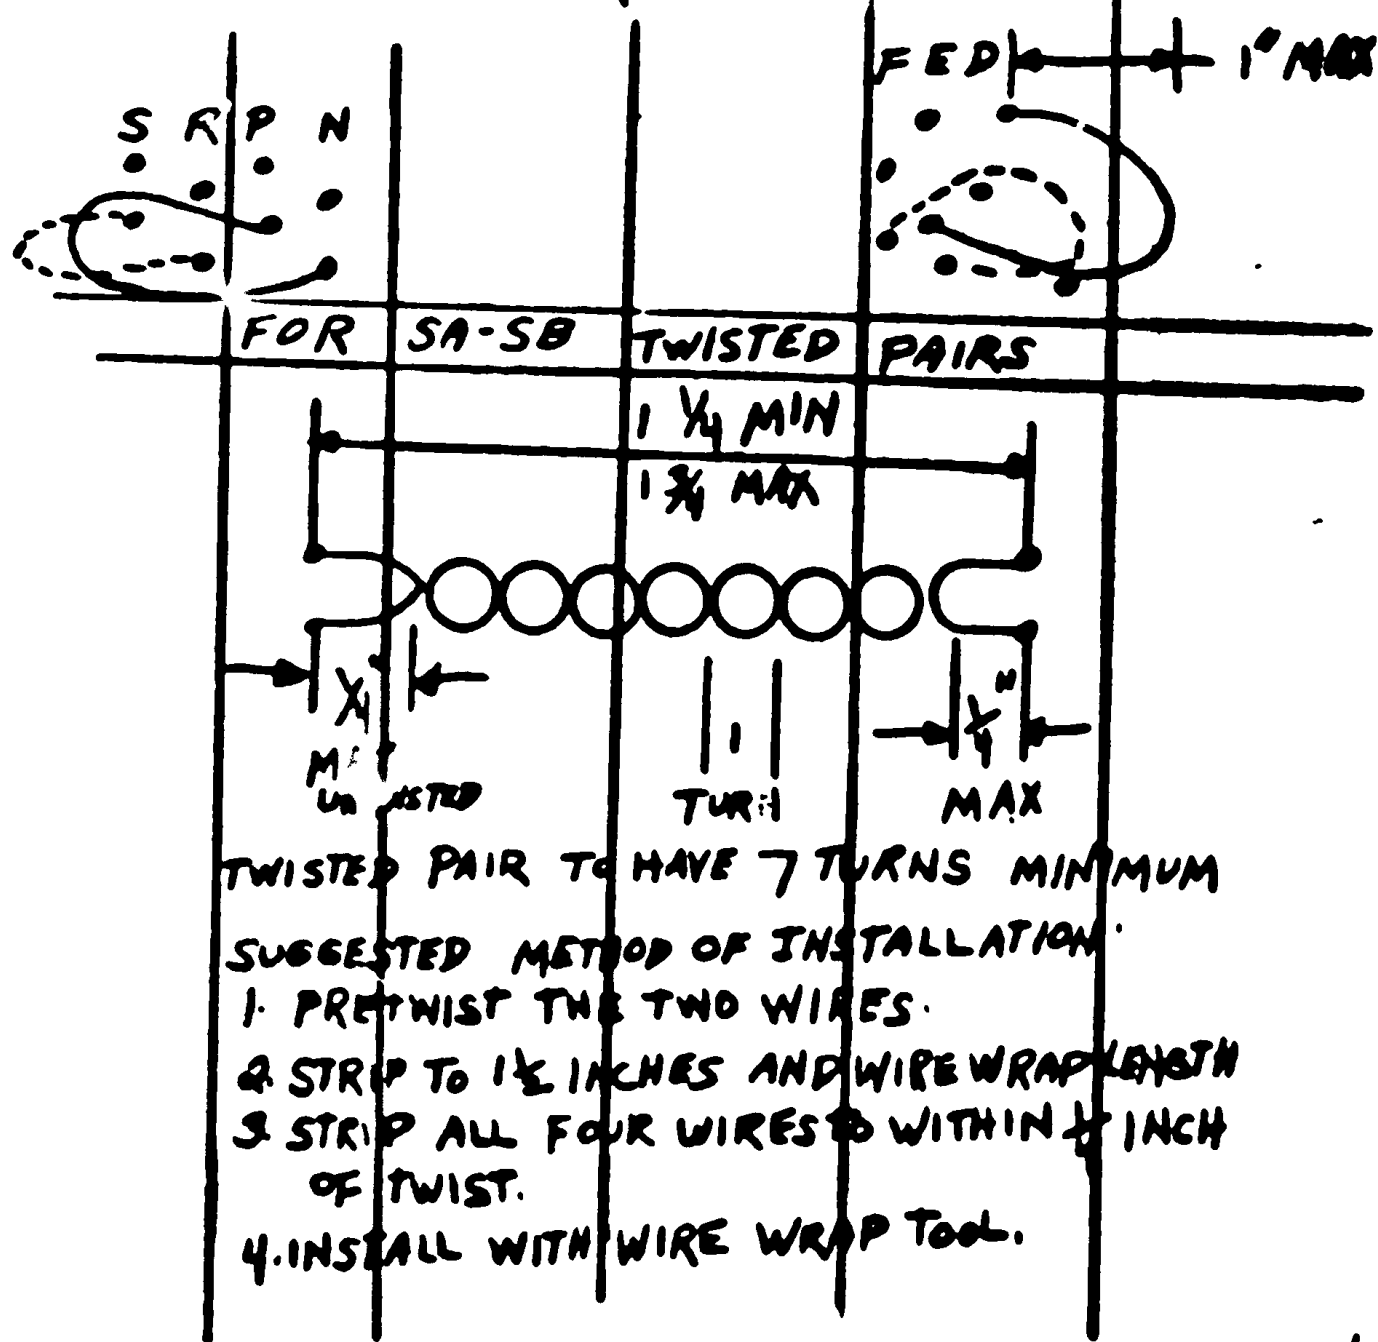 FED 1" MAX
S R P N
FOR SA-SB TWISTED PAIRS
1 1/4 MIN
1 3/4 MAX
1/4" 1 1/4"
TURN MAX
TWISTED PAIR TO HAVE 7 TURNS MINIMUM
SUGGESTED METHOD OF INSTALLATION.
1. PRETWIST THE TWO WIRES.
2. STRIP TO 1 1/2 INCHES AND WIRE WRAP LENGTH
3. STRIP ALL FOUR WIRES TO WITHIN INCH
OF TWIST.
4. INSTALL WITH WIRE WRAP TOOL.